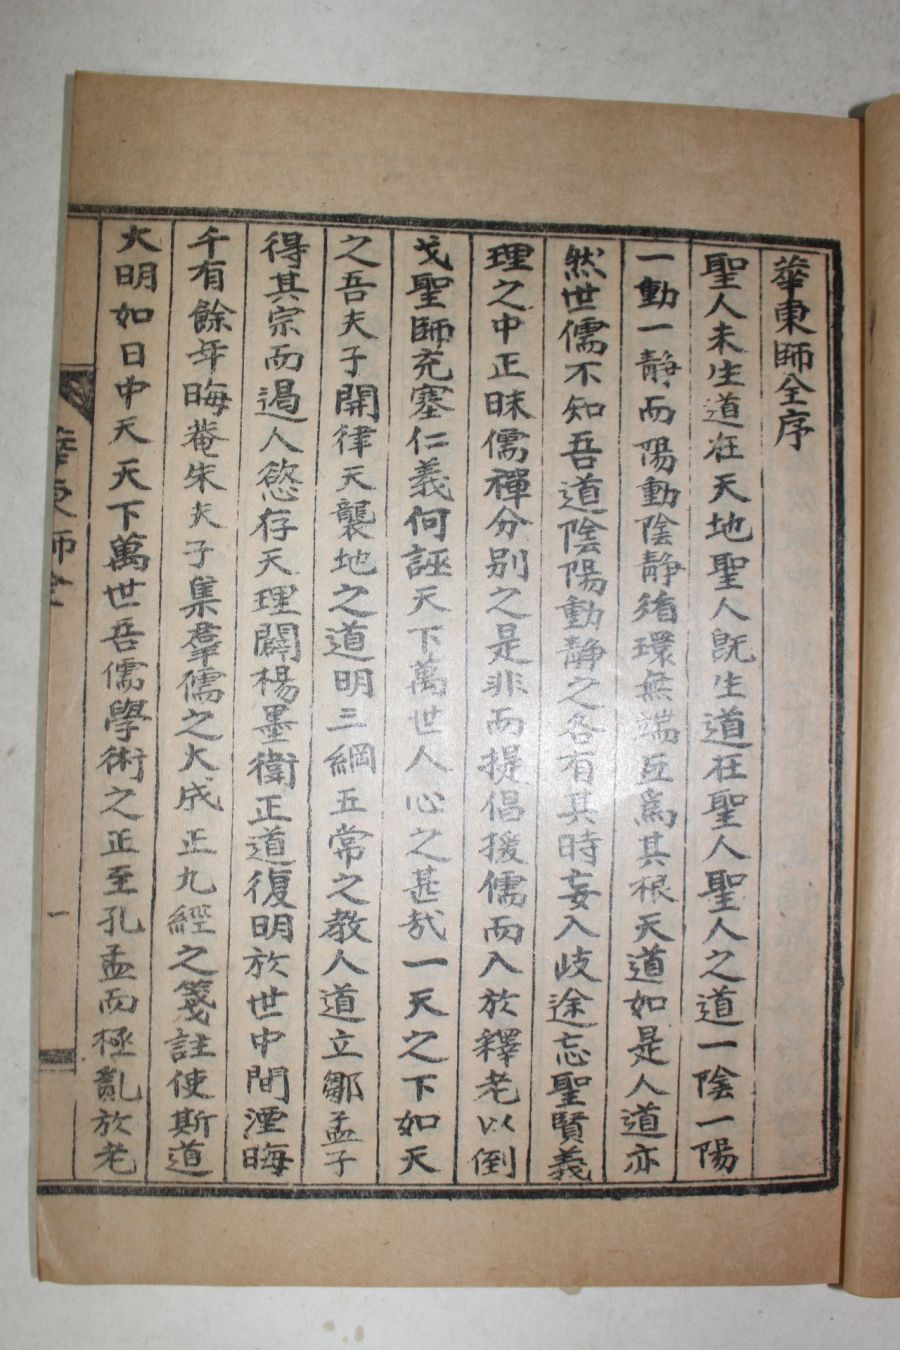 華東師全序
聖人未生道在天地聖人旣生道在聖人聖人之道一陰一陽
一動一靜而陽動陰靜循環無端互爲其根天道如是人道亦
然世儒不知吾道陰陽動靜之各有其時妄入歧途忘聖賢義
理之中正昧儒禪分別之是非而提倡援儒而入於釋老以倒
戈聖師充塞仁義何誣天下萬世人心之甚哉一天之下如天
之吾夫子開律天襲地之道明三綱五常之敎人道立鄒孟子
得其宗而遏人慾存天理闢楊墨衛正道復明於世中間湮晦
千有餘年晦菴朱夫子集羣儒之大成正九經之箋註使斯道
大明如日中天天下萬世吾儒學術之正至孔孟而極亂於老
華東師全
一